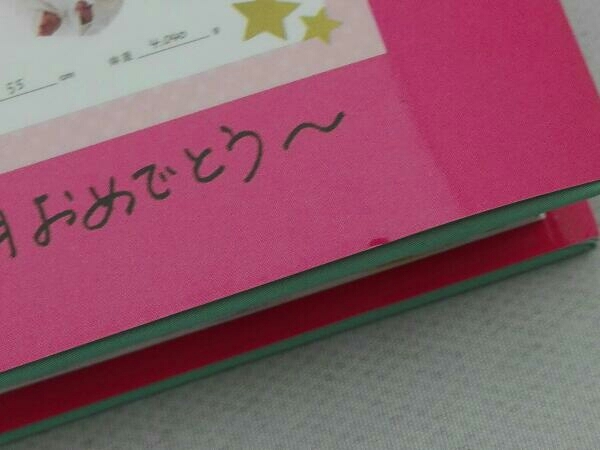 55 cm 体重 4,040 g
月おめでとう～